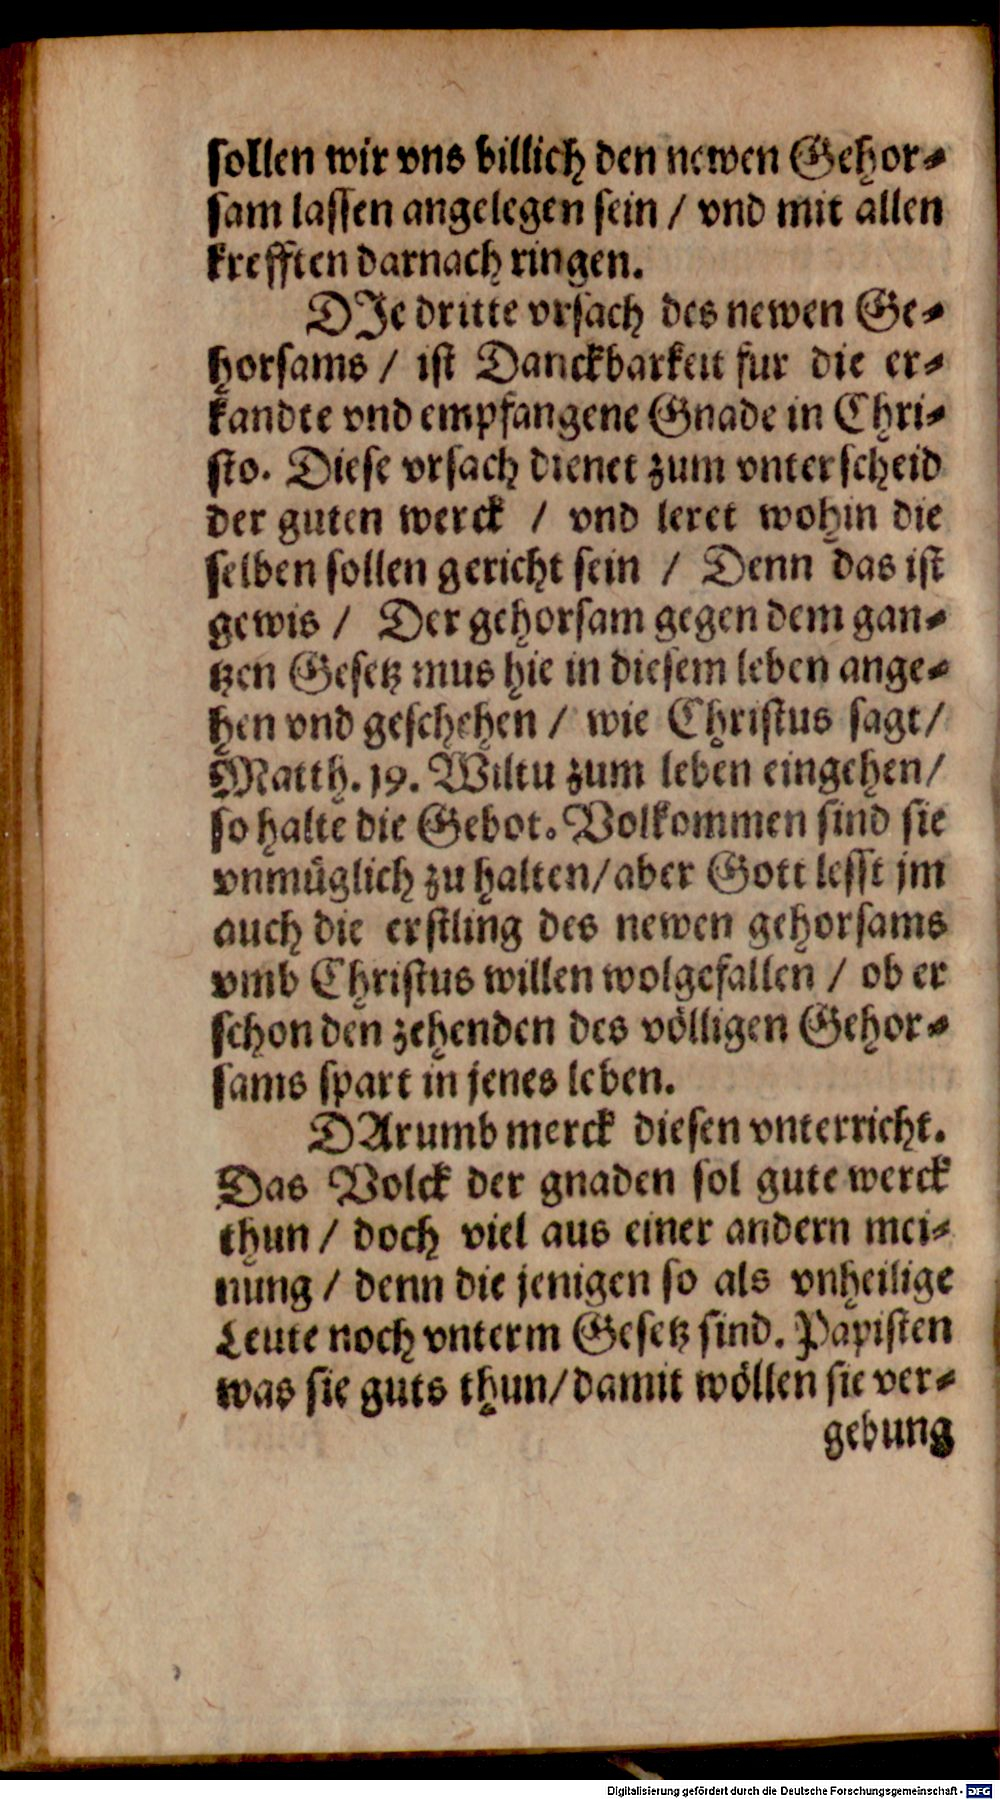 sollen wir vns billich den newen Gehor-
sam lassen angelegen sein / vnd mit allen
krefften darnach ringen.
DIe dritte vrsach des newen Ge-
horsams / ist Danckbarkeit fur die er-
kandte vnd empfangene Gnade in Chri-
sto. Diese vrsach dienet zum vnterscheid
der guten werck / vnd leret wohin die
selben sollen gericht sein / Denn das ist
gewis / Der gehorsam gegen dem gan-
tzen Gesetz mus hie in diesem leben ange-
hen vnd geschehen / wie Christus sagt/
Matth. 19. Wiltu zum leben eingehen/
so halte die Gebot. Volkommen sind sie
vnmüglich zu halten/aber Gott lesst jm
auch die erstling des newen gehorsams
vmb Christus willen wolgefallen / ob er
schon den zehenden des völligen Gehor-
sams spart in jenes leben.
DArumb merck diesen vnterricht.
Das Volck der gnaden sol gute werck
thun / doch viel aus einer andern mei-
nung / denn die jenigen so als vnheilige
Leute noch vnterm Gesetz sind. Papisten
was sie guts thun/damit wöllen sie ver-
gebung
Digitalisierung gefördert durch die Deutsche Forschungsgemeinschaft - DFG